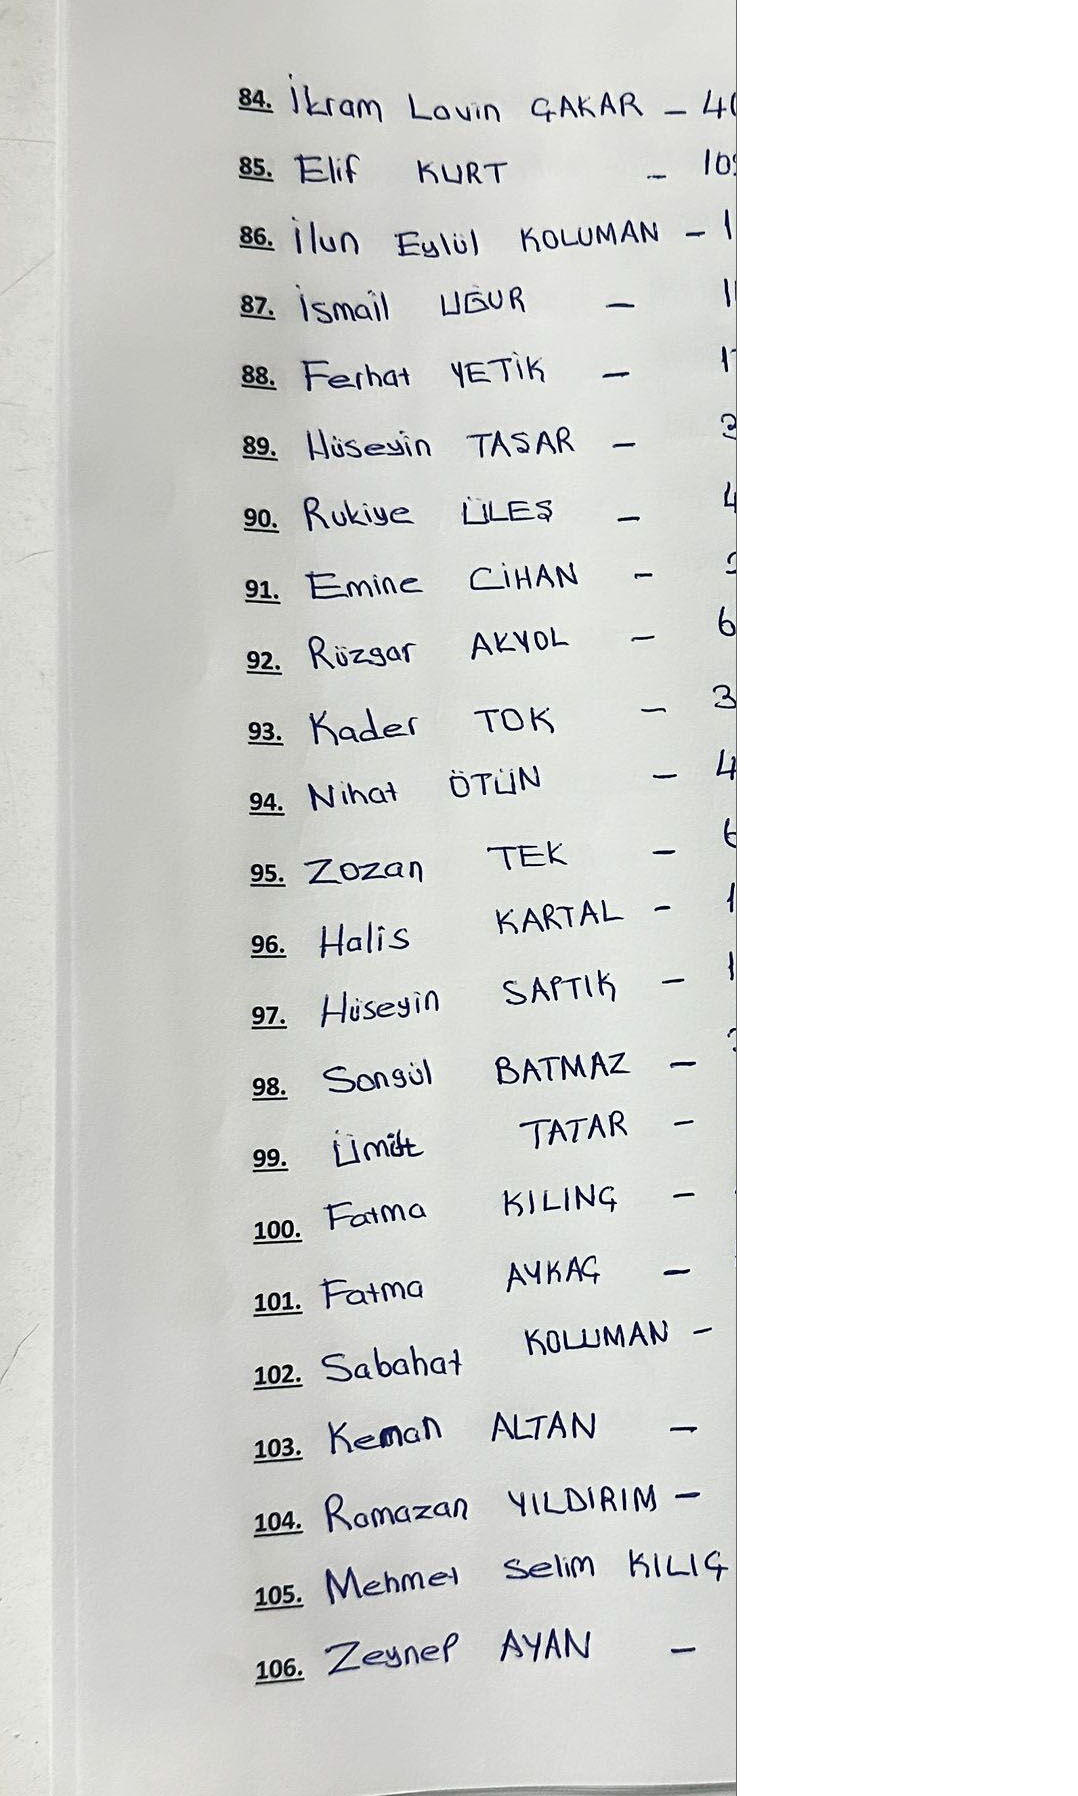 84. İkram Lavin ÇAKAR - 40
85. Elif KURT - 10
86. İlun Eylül KOLUMAN - 1
87. İsmail UĞUR - 1
88. Ferhat YETİK - 1
89. Hüseyin TASAR - 3
90. Rukiye ÜLEŞ - 4
91. Emine CİHAN -
92. Rüzgar AKYOL - 6
93. Kader TOK - 3
94. Nihat ÖTÜN - 4
95. Zozan TEK - 6
96. Halis KARTAL - 1
97. Hüseyin SAPTIK - 1
98. Songül BATMAZ -
99. Ümit TATAR -
100. Fatma KILINÇ -
101. Fatma AYKAÇ -
102. Sabahat KOLUMAN -
103. Kenan ALTAN -
104. Ramazan YILDIRIM -
105. Mehmet Selim KILIÇ
106. Zeynep AYAN -